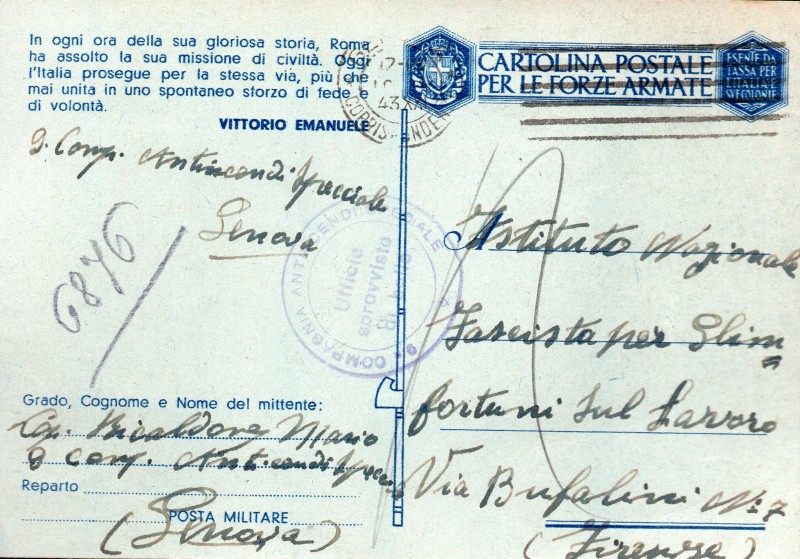 In ogni ora della sua gloriosa storia, Roma
ha assolto la sua missione di civiltà. Oggi
l'Italia prosegue per la stessa via, più che
mai unita in uno spontaneo sforzo di fede e
di volontà.
VITTORIO EMANUELE
CARTOLINA POSTALE
PER LE FORZE ARMATE
ESENTE DA
TASSA PER
L'ITALIA
43 XX
9 Comp. Antincendi Speciale
Genova
6876
COMPAGNIA ANTINCENDI SPECIALE
Ufficio
sprovvisto
di
Istituto Nazionale
Fascista per Glim
fortuni sul Lavoro
Via Bufalini N. 7
(Firenze)
Grado, Cognome e Nome del mittente:
Mario
9 Comp. Antincendi
Reparto
POSTA MILITARE
(Genova)